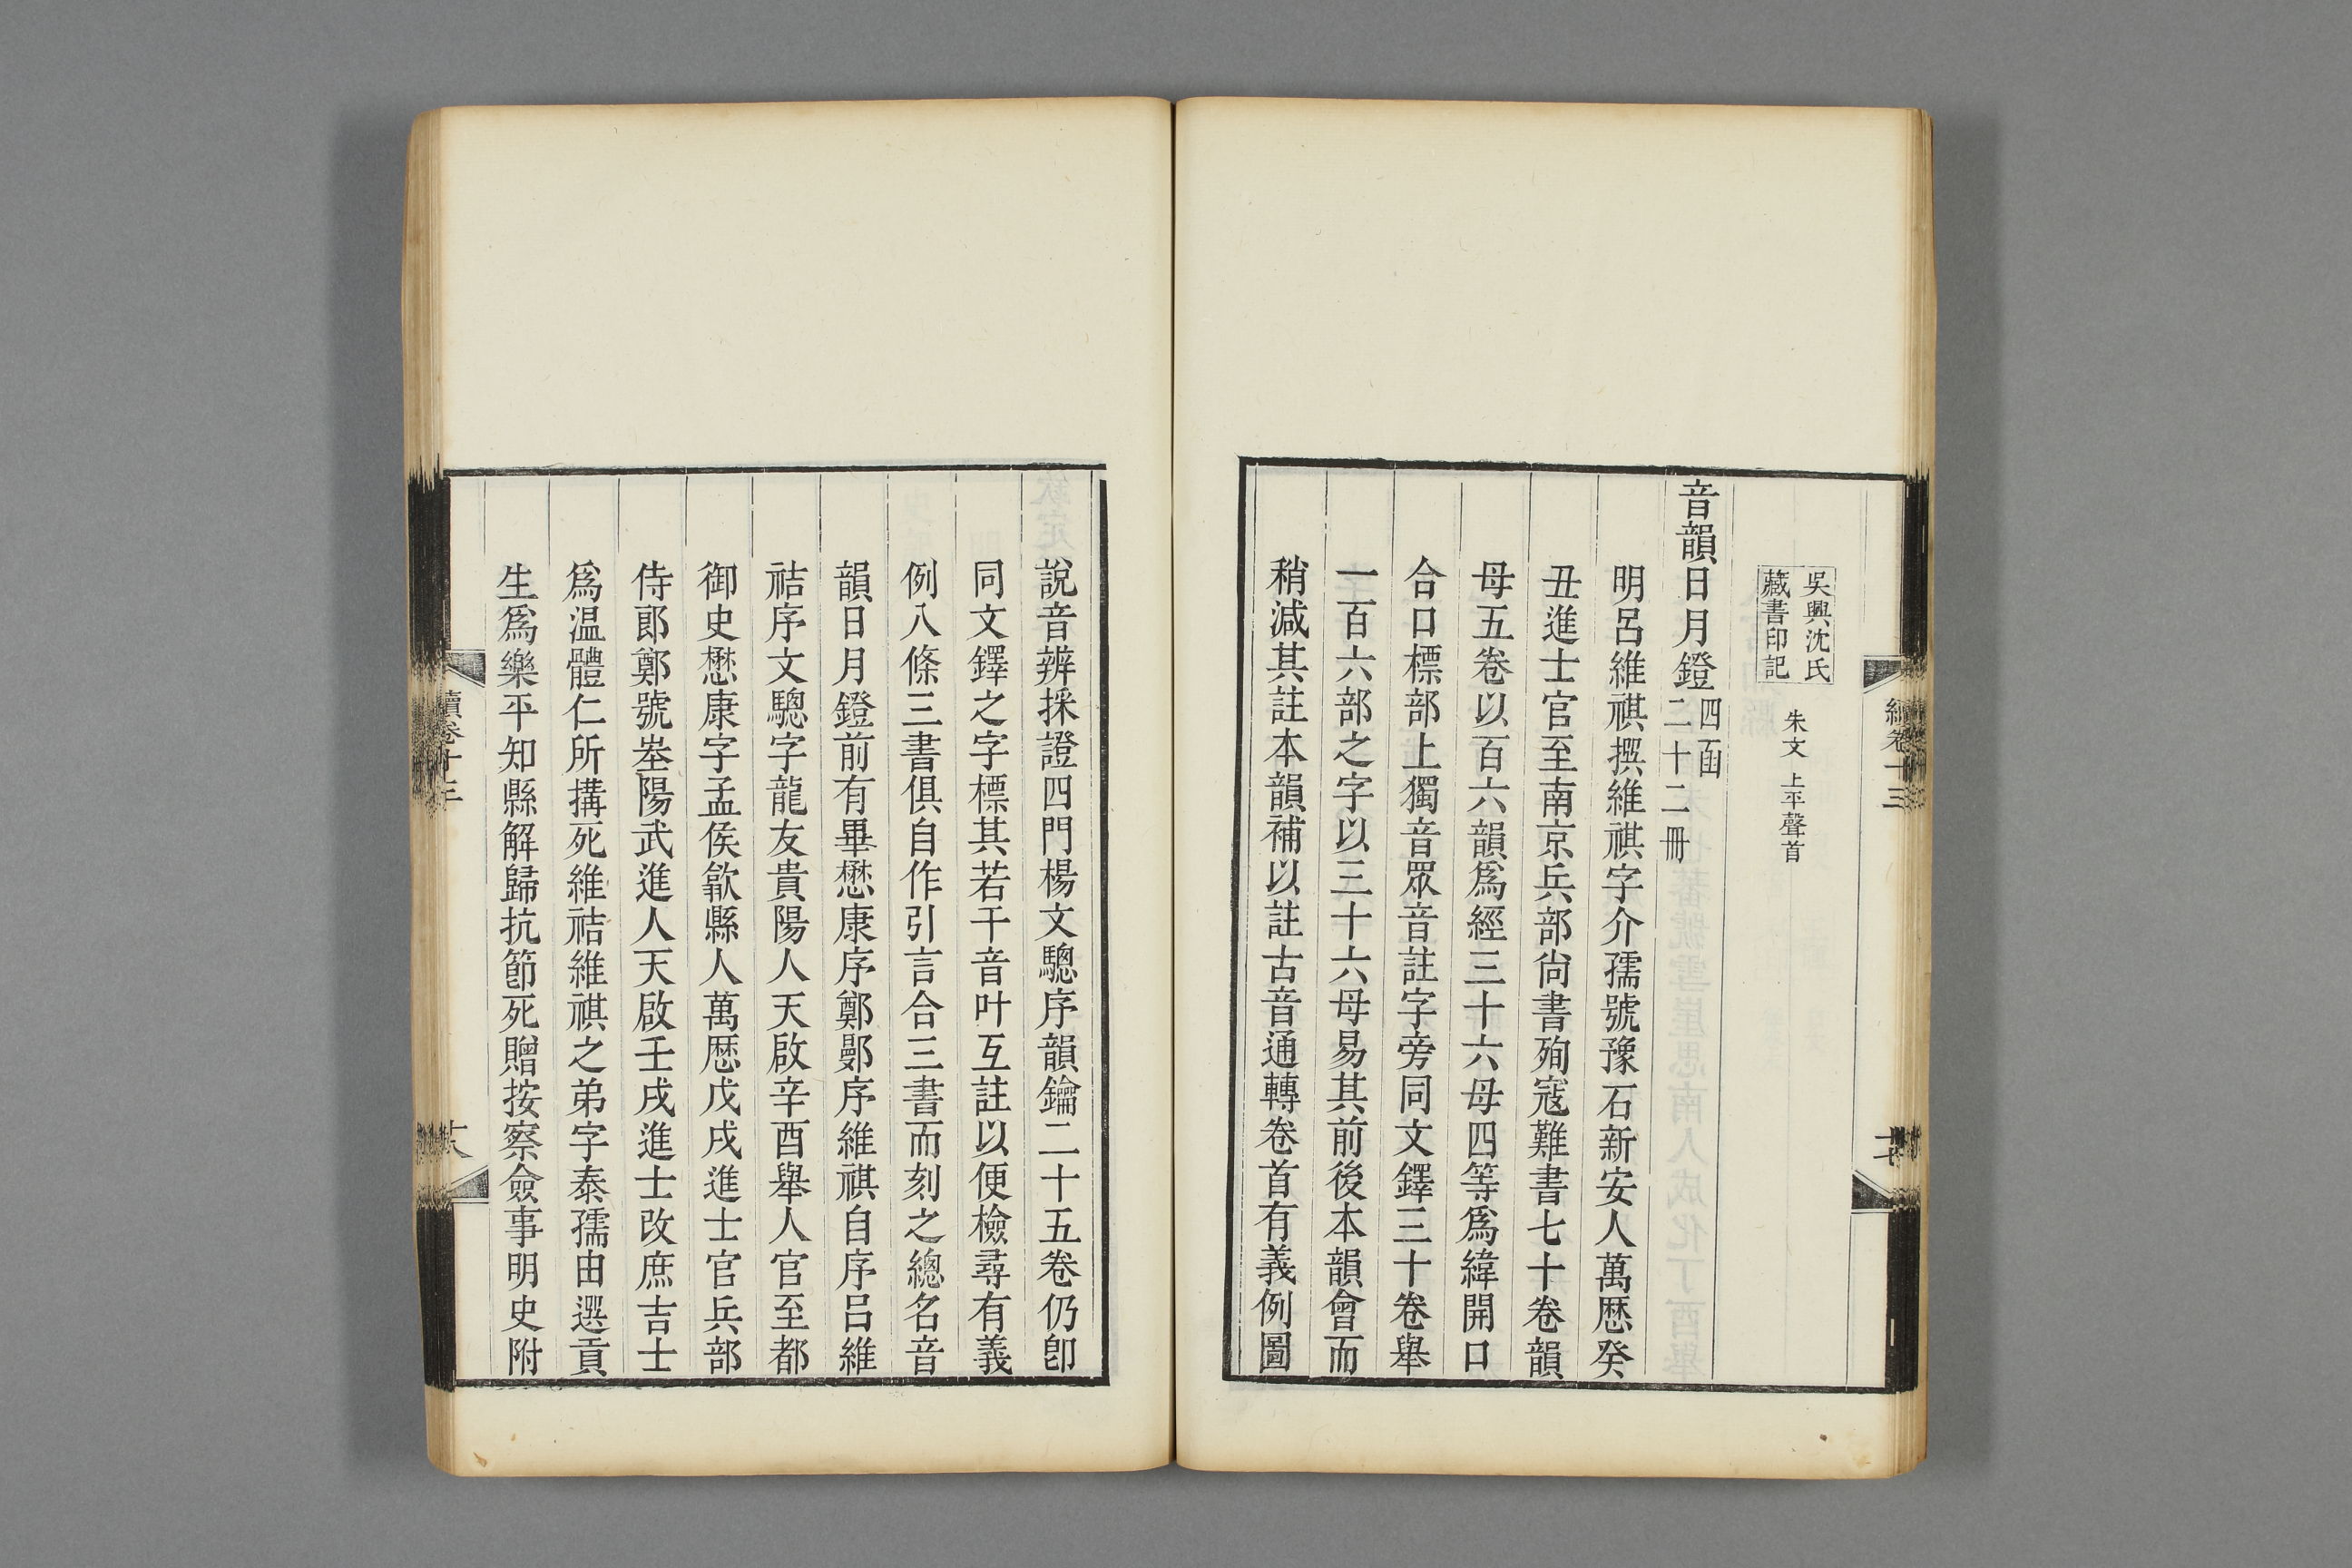 吳興沈氏
藏書印記
朱文 上平聲首
音韻日月鐙四函
二十二冊
明呂維祺撰維祺字介孺號豫石新安人萬厯癸
丑進士官至南京兵部尙書殉寇難書七十卷韻
母五卷以百六韻爲經三十六母四等爲緯開口
合口標部上獨音眾音註字旁同文鐸三十卷舉
一百六部之字以三十六母易其前後本韻會而
稍減其註本韻補以註古音通轉卷首有義例圖
說音辨採證四門楊文驄序韻鑰二十五卷仍卽
同文鐸之字標其若干音叶互註以便檢尋有義
例八條三書俱自作引言合三書而刻之總名音
韻日月鐙前有畢懋康序鄭鄤序維祺自序呂維
祮序文驄字龍友貴陽人天啟辛酉舉人官至都
御史懋康字孟侯歙縣人萬厯戊戌進士官兵部
侍郎鄭號峚陽武進人天啟壬戌進士改庶吉士
爲溫體仁所搆死維祮維祺之弟字泰孺由選貢
生爲樂平知縣解歸抗節死贈按察僉事明史附